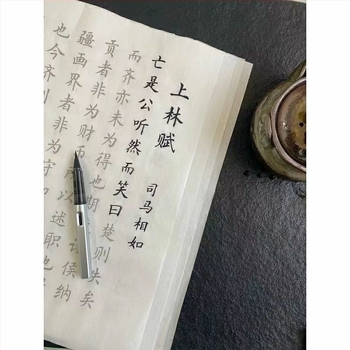 上林赋
司马相如
亡是公听然而笑曰楚则失矣
而齐亦未为得也 侯纳
贡者非为财 以述职也
疆画界者非为守
也今齐列